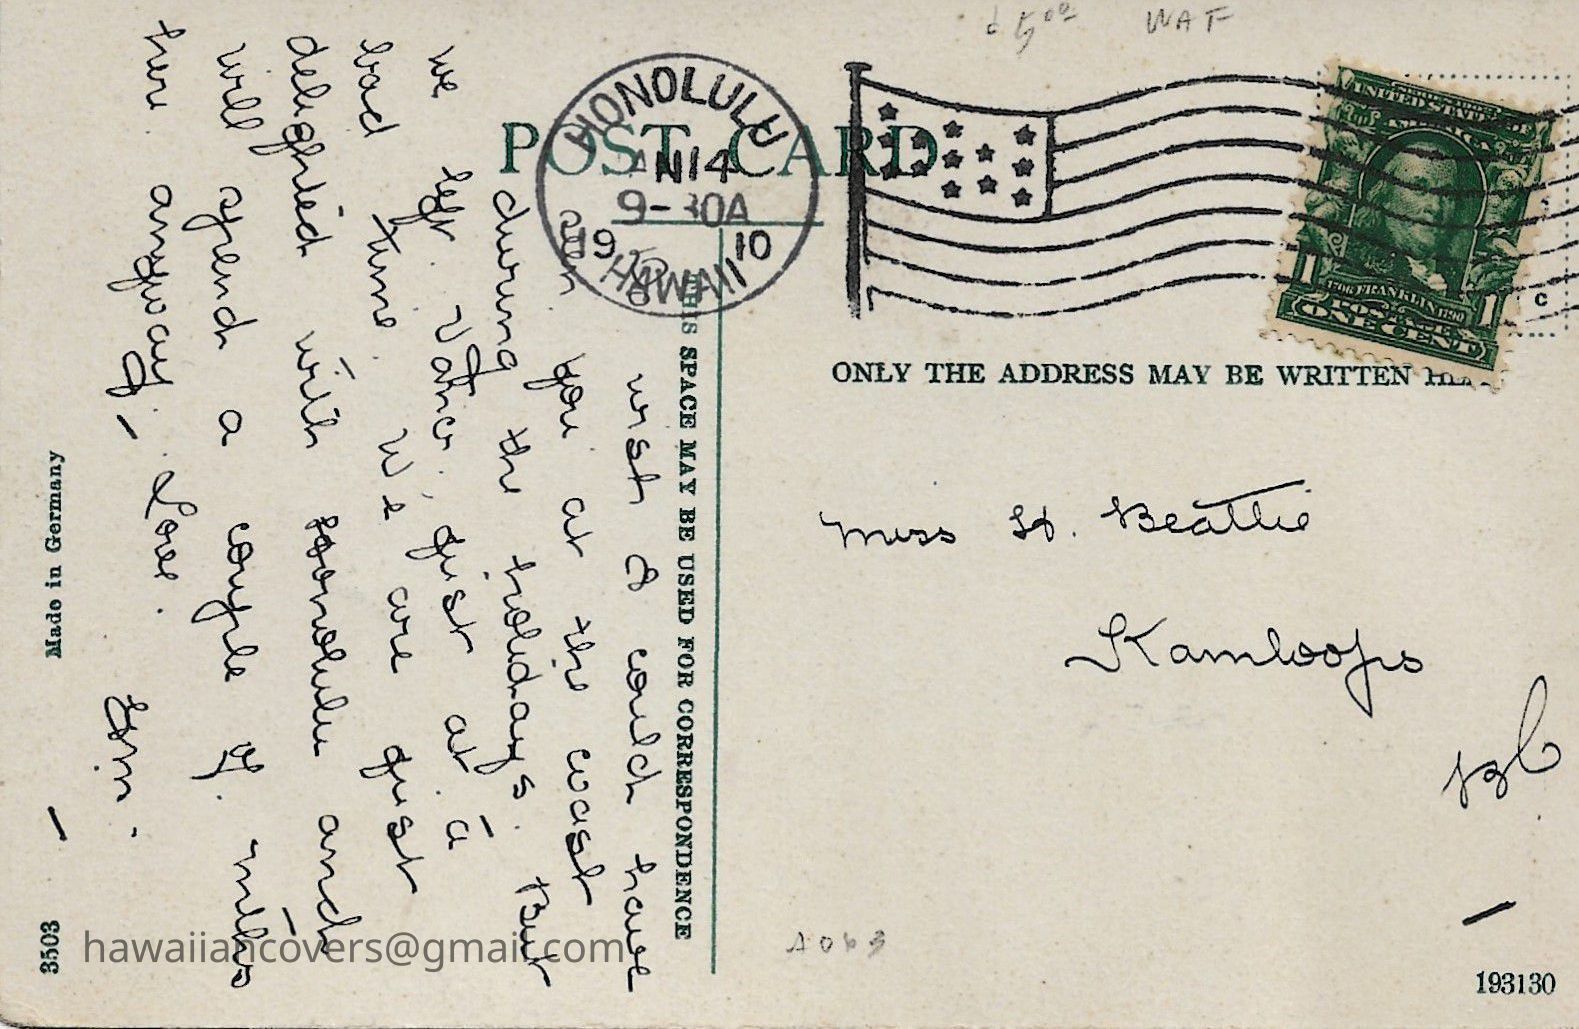 $5.00 WAF
POST CARD
HONOLULU
JAN 14
9-30A
19 10
HAWAII
UNITED STATES OF
AMERICA
1706 FRANKLIN 1790
1 1
POSTAGE
ONE CENT
C
THIS SPACE MAY BE USED FOR CORRESPONDENCE
ONLY THE ADDRESS MAY BE WRITTEN HE
Miss H. Beattie
Kamloops
BC
wish I could have
seen you at the coast
during the holidays. But
we left Vanc. just at a
bad time. We are just
delighted with Honolulu and
will spend a couple of mths
here anyway. – Love.
Made in Germany
3503
hawaiiancovers@gmail.com
193130